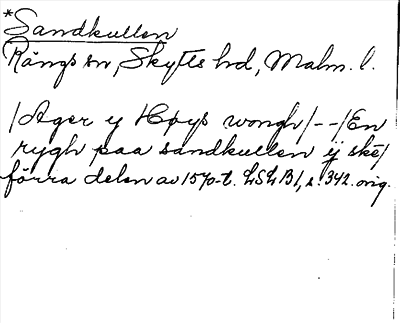 *Sandkullen
Rängs sn, Skytts hd, Malm. l.
/Ager y Høys wongh/--/En
rygh paa sandkullen ÿ ske/
förra delen av 1570-t. LSLB1, s. 342. orig.